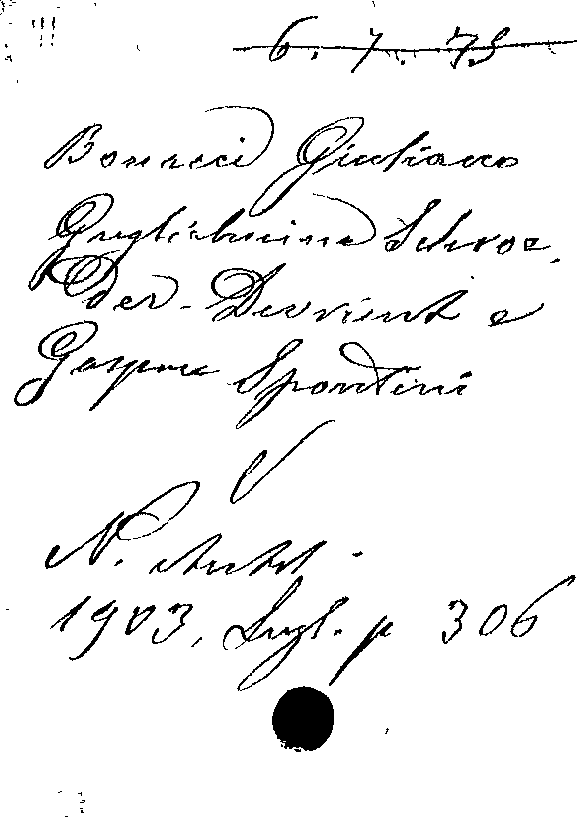 6. 7. 75
Bonacci Giuliano
Guglielmina Schroe
der-Devrient e
Gaspare Spontini
N. Antol.
1903, Lugl. p 306